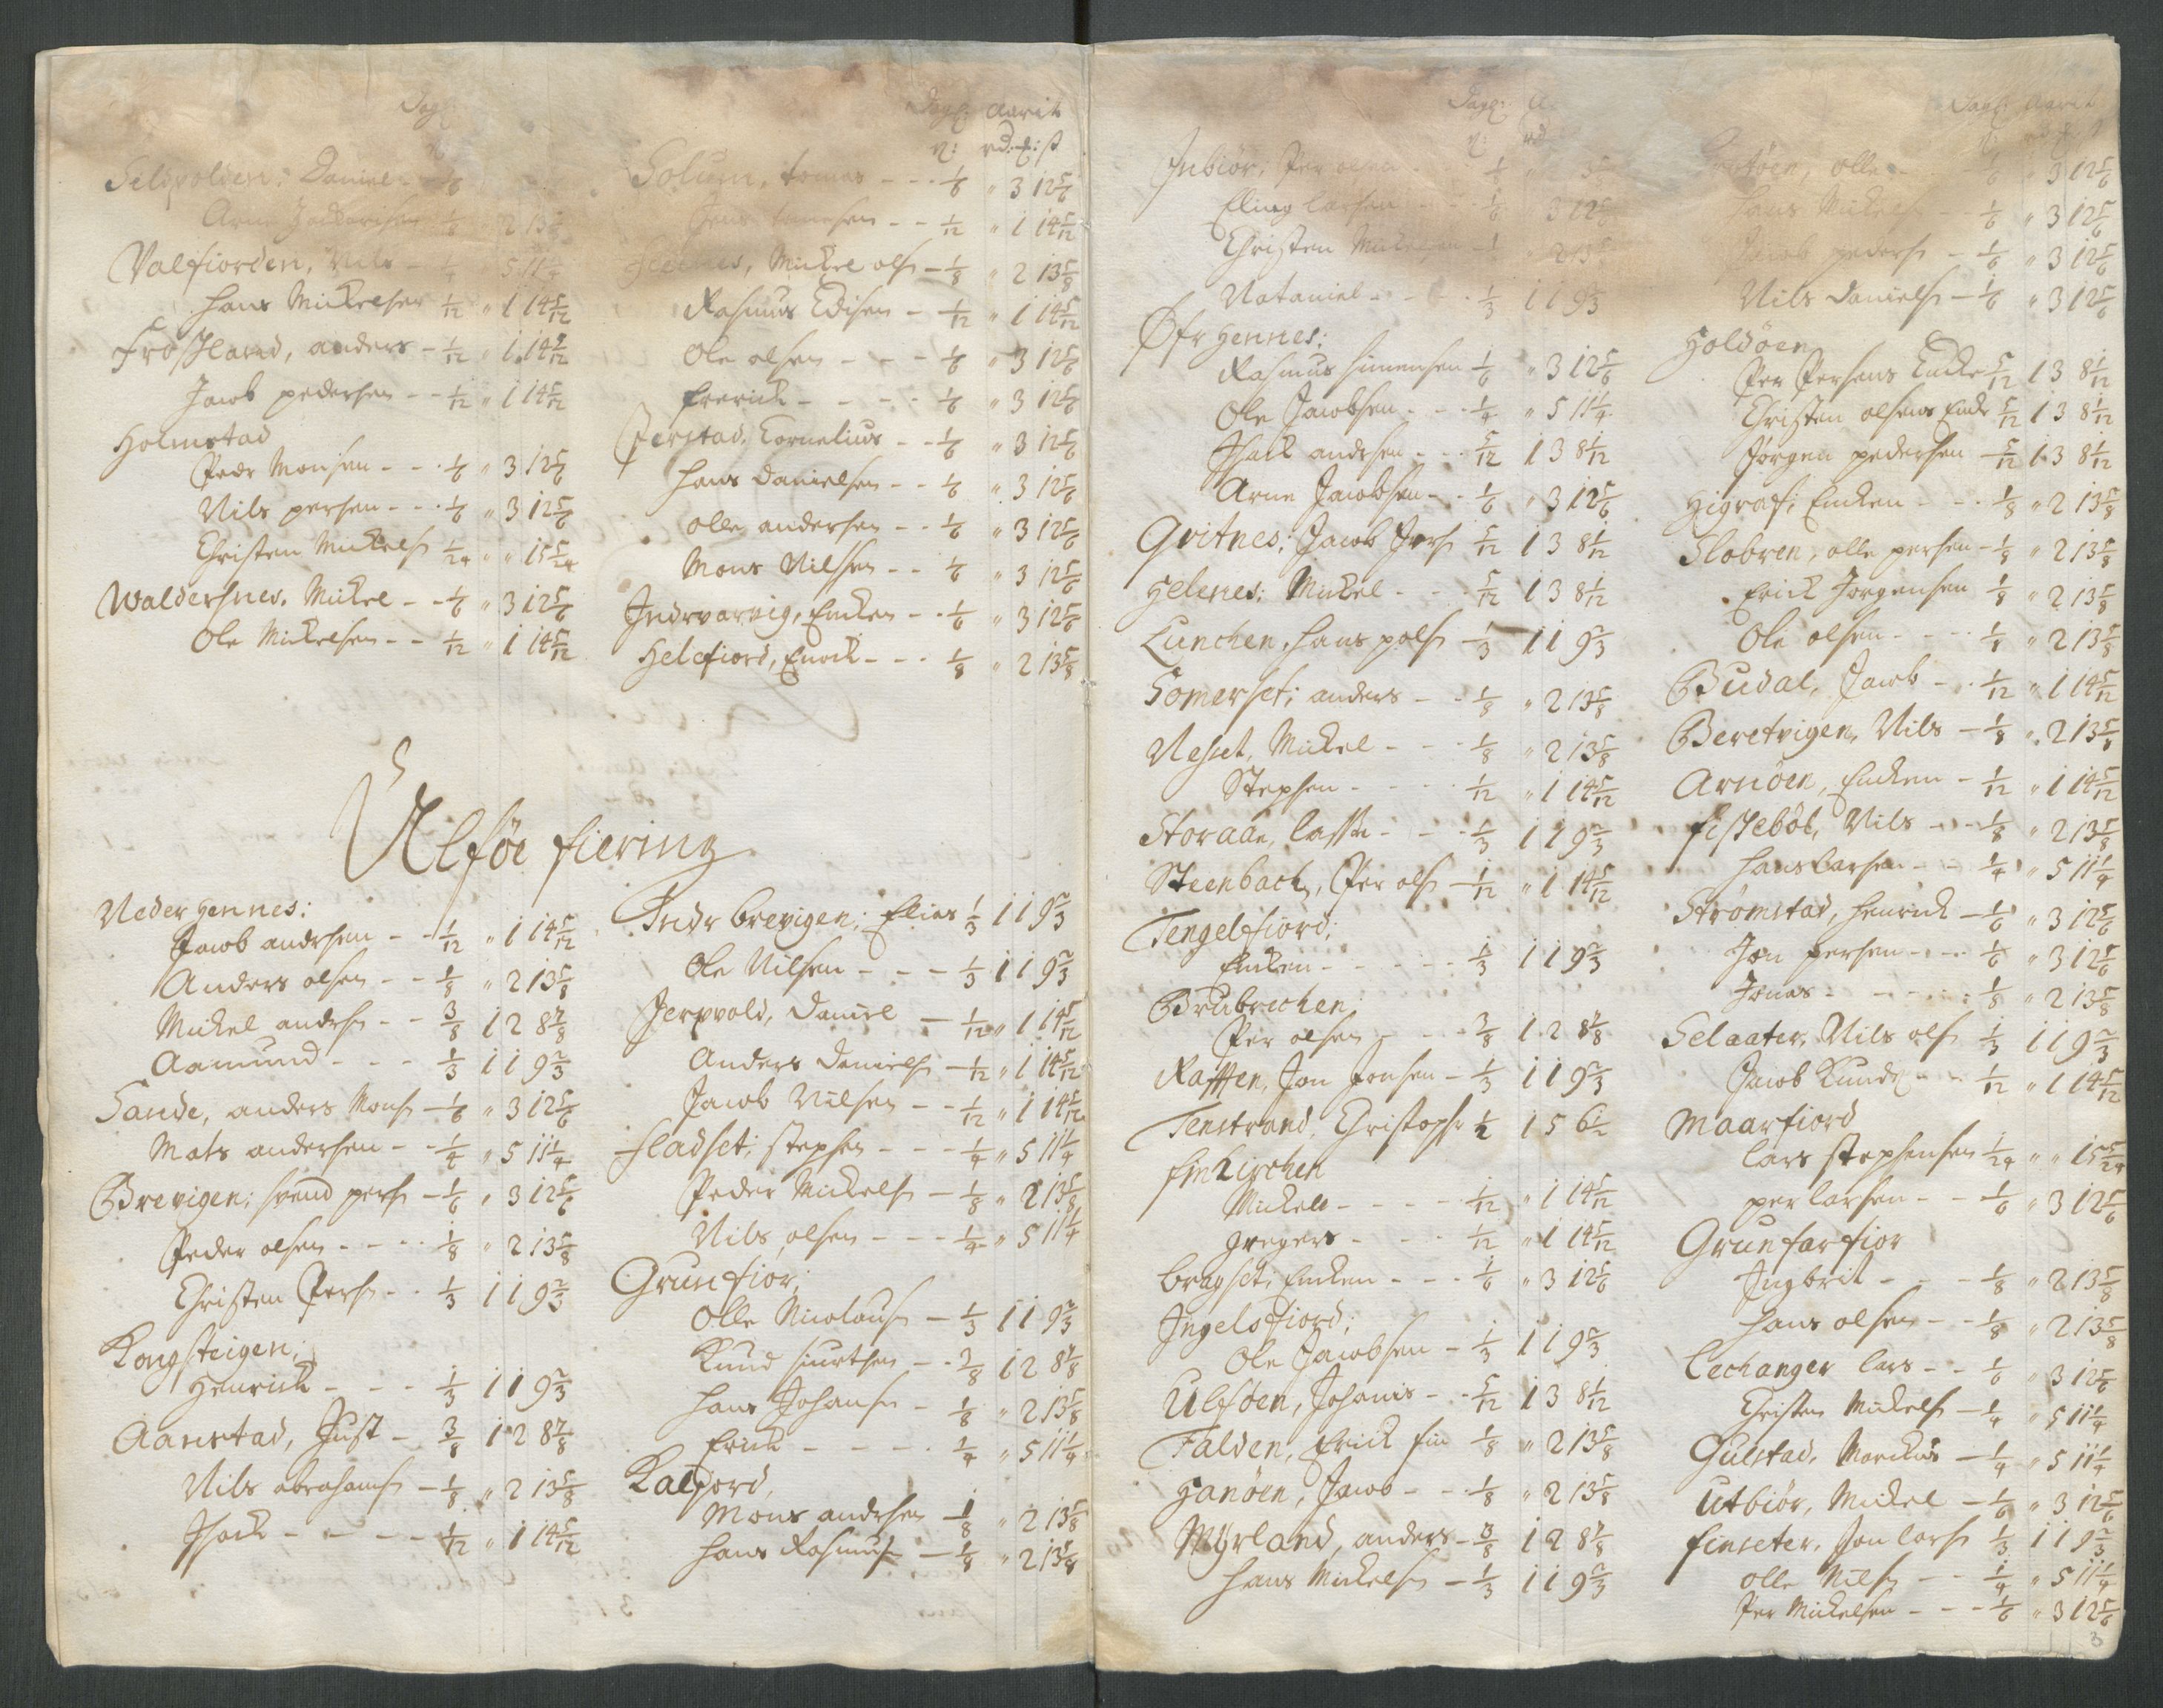 Dagl:
Seldpolden: Daniel - 1/6
Arne Zachariesen 1/8 " 2 13 5/8
Valfiorden, Nils - 1/4 " 5 11 1/4
Hans Mickelsen 1/12 " 1 14 5/12
Frosland, anders - 1/12 " 1 14 5/12
Jacob pedersen - - 1/12 " 1 14 5/12
Holmstad
Peder Monsen - - - 1/6 " 3 12 5/6
Nils persen - - - 1/6 " 3 12 5/6
Christen Mickels 1/24 " " 15 5/24
Waldersnes. Mickel - - 1/6 " 3 12 5/6
Ole Mickelsen - - 1/12 " 1 14 5/12
Dagl: Aarit
rd: : ß
Solum, tomas - - - 1/6 " 3 12 5/6
Jens tomesen - - 1/12 " 1 14 5/12
Mickel ols - 1/8 " 2 13 5/8
Rasmus Edisen - 1/12 " 1 14 5/12
Ole olsen - - - 1/6 " 3 12 5/6
Frerick - - - - 1/6 " 3 12 5/6
Jerstad, Cornelius - - 1/6 " 3 12 5/6
Hans Danielsen - - 1/6 " 3 12 5/6
Olle andersen - - 1/6 " 3 12 5/6
Mons Nilssen - - 1/6 " 3 12 5/6
Indrvarvig, Encken - - 1/6 " 3 12 5/6
Helefiord, Enock - - - 1/8 " 2 13 5/8
Ulföe fiering
Neder Hennes:
Jacob andrsen - - 1/12 " 1 14 5/12
Anders olsen - - 1/8 " 2 13 5/8
Mickel andrs - - 3/8 1 2 8 7/8
Aamund - - - 1/3 1 1 9 2/3
Sande, anders Mons - 1/6 " 3 12 5/6
Mats andersen - - 1/4 " 5 11 1/4
Brevigen; svend pers - 1/6 " 3 12 5/6
Peder olsen - - - 1/8 " 2 13 5/8
Christen Pers - - 1/3 1 1 9 2/3
Kongsteigen;
Henrick - - - 1/3 1 1 9 2/3
Aanstad, Just - 3/8 1 2 8 7/8
Nils abrahams - 1/8 " 2 13 5/8
Isack - - - - 1/12 " 1 14 5/12
Indr brevigen; Elias 1/3 1 1 9 2/3
Ole Nilsen - - - 1/3 1 1 9 2/3
Jerpvold, Daniel - 1/12 " 1 14 5/12
Anders Daniels - 1/12 " 1 14 5/12
Jacob Nilsen - - 1/12 " 1 14 5/12
Fladset; stephen - - - 1/4 " 5 11 1/4
Peder Mickels - 1/8 " 2 13 5/8
Nils olsen - - - 1/4 " 5 11 1/4
Grunfior;
Olle Nicolaus - 1/3 1 1 9 2/3
Knud siurtsen - - 3/8 1 2 8 7/8
Hans Johans - 1/8 " 2 13 5/8
Erick - - - - 1/4 " 5 11 1/4
Kalfiord,
Mons andrsen - 1/8 " 2 13 5/8
Hans Rasmus - 1/8 " 2 13 5/8
Dagl:
Inbiör; Per olsen 1/8
Elling larsen - - - 1/6 " 3 12 5/6
Christen Mickelsen - " 2 13 5/8
Nataniel - - - - 1/3 1 1 9 2/3
Øfr Hennes;
Rasmus simensen 1/6 " 3 12 5/6
Ole Jacobsen - - - 1/4 " 5 11 1/4
Isack andrsen - - - 5/12 1 3 8 1/12
Arne Jacobsen - - 1/6 " 3 12 5/6
Qvitnes; Jacob Jvers 5/12 1 3 8 1/12
Helenes; Mickel - - - 5/12 1 3 8 1/12
Lunchen, Hans pols 1/3 1 1 9 2/3
Somerset; anders - - 1/8 " 2 13 5/8
Nesset, Mickel - - - 1/8 " 2 13 5/8
Stephen - - - - 1/12 " 1 14 5/12
Storaae, lasse - - - 1/3 1 1 9 2/3
Steenbach, Per ols - 1/12 " 1 14 5/12
Tengelfiord;
Encken - - - - - 1/3 1 1 9 2/3
Brubrechen;
Per olsen - - - 3/8 1 2 8 7/8
Rafften, Jon Jonsen - 1/3 1 1 9 2/3
Tenstrand, Christopfr 1/2 1 5 6 1/2
Finkirchen
Mickell - - - - 1/12 " 1 14 5/12
Gregers - - - 1/12 " 1 14 5/12
Bragset; Encken - - - 1/6 " 3 12 5/6
Ingelsfiord;
Ole Jacobsen - 1/3 1 1 9 2/3
Ulföen, Johanis - - 5/12 1 3 8 1/12
Falden, Erick fin 1/8 " 2 13 5/8
Hanöen, Jacob - - - 1/8 " 2 13 5/8
Myrland, anders - 3/8 1 2 8 7/8
Hans Mickels - 1/3 1 1 9 2/3
Dagl: Aarit
olle 1/6 " 3 12 5/6
Hans Mickels - 1/6 " 3 12 5/6
Jacob peders - 1/6 " 3 12 5/6
Nils Daniels - 1/6 " 3 12 5/6
Holdöen
Per Persens Encke 5/12 1 3 8 1/12
Christen olsens Encke 5/12 1 3 8 1/12
Jörgen pedersen - 5/12 1 3 8 1/12
Higraf; Encken - - - 1/8 " 2 13 5/8
Slobren, olle persen - 1/8 " 2 13 5/8
Erick Jorgensen 1/8 " 2 13 5/8
Ole olsen - - - - 1/8 " 2 13 5/8
Budal, Jacob - - 1/12 " 1 14 5/12
Beretvigen, Nils - 1/8 " 2 13 5/8
Arnöen, Encken - 1/12 " 1 14 5/12
Fiskeböl, Nils - - - 1/8 " 2 13 5/8
Hans larsen - - 1/4 " 5 11 1/4
Strömstad, Henrick - 1/6 " 3 12 5/6
Jon persen - - - 1/6 " 3 12 5/6
Jonas - - - - - 1/8 " 2 13 5/8
Selaater, Nils ols 1/3 1 1 9 2/3
Jacob Knuds - - 1/12 " 1 14 5/12
Maarfiord
Lars stephensen 1/24 " " 15 5/24
per larsen - - - 1/6 " 3 12 5/6
Grunfarfior
Ingbrit - - - 1/8 " 2 13 5/8
Hans olsen - - 1/8 " 2 13 5/8
Lechanger lars - - 1/6 " 3 12 5/6
Christen Mickels - 1/4 " 5 11 1/4
Gulstad, Marckus - 1/4 " 5 11 1/4
Utbiör, Mickel - 1/6 " 3 12 5/6
Finseter, Jon lars 1/3 1 1 9 2/3
Olle Nils - - 1/4 " 5 11 1/4
Per Mickelsen - - - 1/6 " 3 12 5/6
3